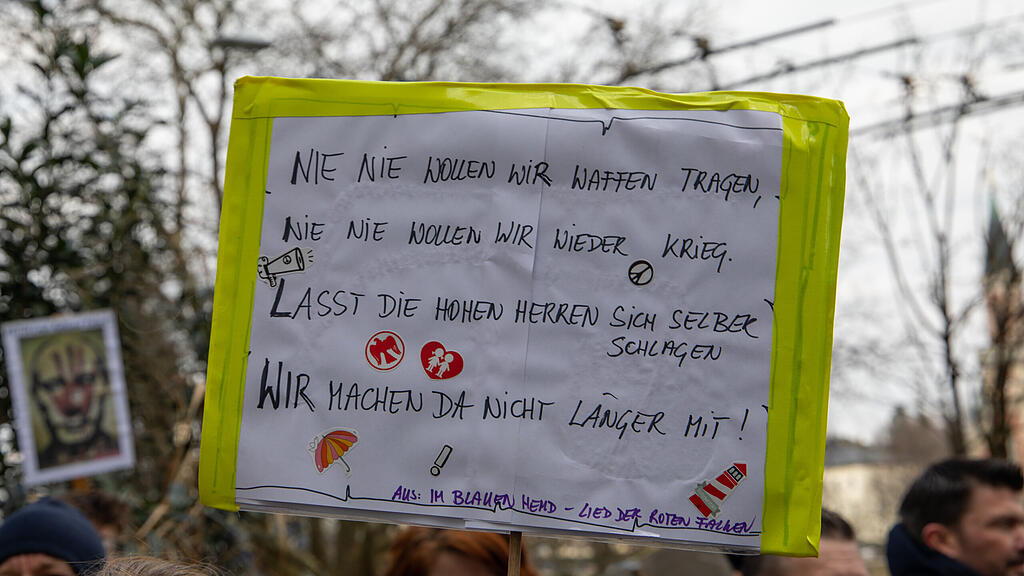 NIE NIE WOLLEN WIR WAFFEN TRAGEN,
NIE NIE WOLLEN WIR WIEDER KRIEG.
LASST DIE HOHEN HERREN SICH SELBER
SCHLAGEN
WIR MACHEN DA NICHT LÄNGER MIT!
AUS: IM BLAUEN HEMD - LIED DER ROTEN FALKEN